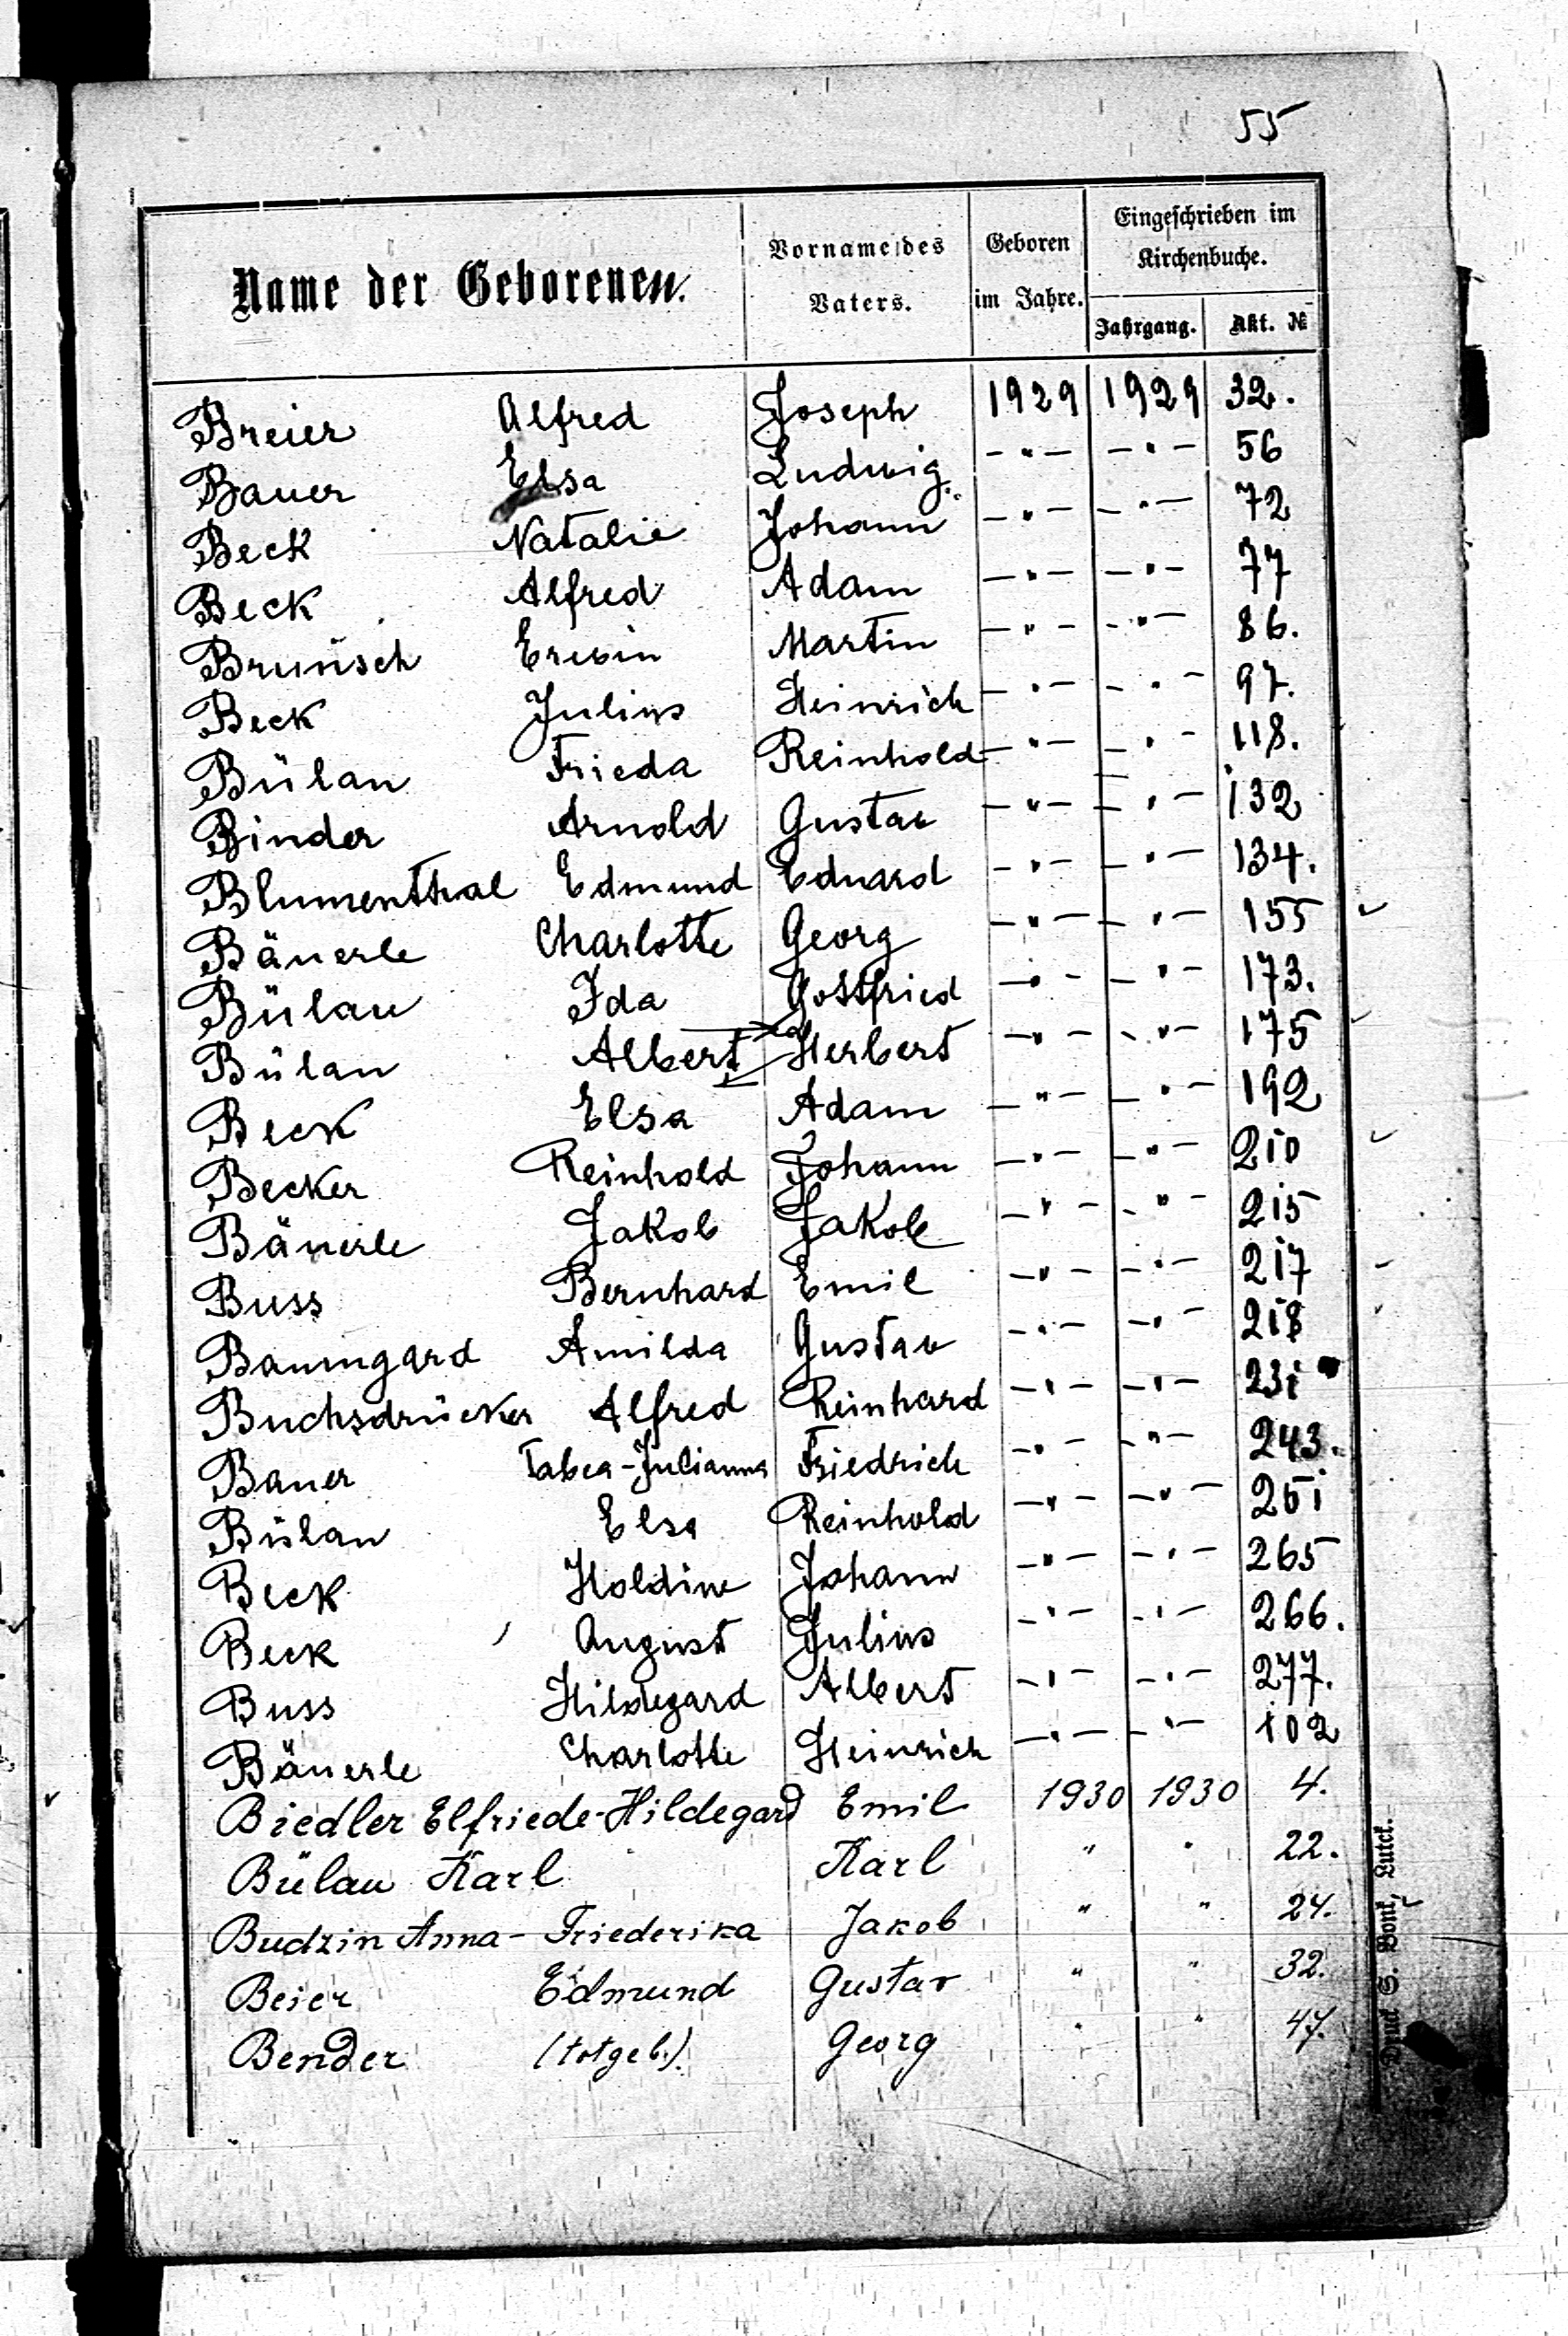 55
Name der Geborenen. Vorname des Vaters. Geboren im Jahre. Eingeschrieben im Kirchenbuche.
Jahrgang. Akt. №
Breier Alfred Joseph 1929 1929 32.
Bauer Elsa Ludwig -"- -"- 56
Beck Natalie Johann -"- -"- 72
Beck Alfred Adam -"- -"- 77
Brunsch Erwin Martin -"- -"- 86.
Beck Julius Heinrich -"- -"- 97.
Bülau Frieda Reinhold -"- -"- 118.
Binder Arnold Gustav -"- -"- 132
Blumenthal Edmund Eduard -"- -"- 134.
Bäuerle Charlotte Georg -"- -"- 155
Bülau Ida Gottfried -"- -"- 173.
Bülau Albert Herbert -"- -"- 175
Beck Elsa Adam -"- -"- 192
Becker Reinhold Johann -"- -"- 210
Bäuerle Jakob Jakob -"- -"- 215
Buss Bernhard Emil -"- -"- 217
Baumgard Amilda Gustav -"- -"- 218
Buchsdrücker Alfred Reinhard -"- -"- 231
Bauer Tabea-Julianna Friedrich -"- -"- 243.
Bülau Elsa Reinhold -"- -"- 251
Beck Holdine Johann -"- -"- 265
Beck August Julius -"- -"- 266.
Buss Hildegard Albert -"- -"- 277.
Bäuerle Charlotte Heinrich -"- -"- 102
Biedler Elfriede-Hildegard Emil 1930 1930 4.
Bülau Karl Karl " " 22.
Budzin Anna-Friederika Jakob " " 24.
Beier Edmund Gustav " " 32.
Bender (totgeb.) Georg " " 47.
Druck S. Bonk, Luck.